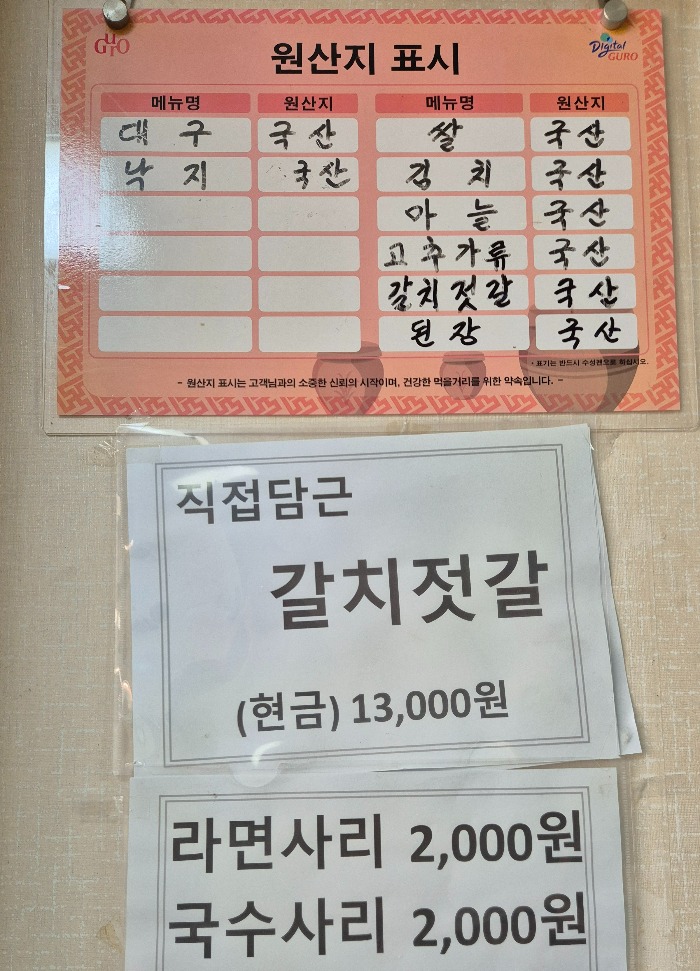 GURO
Digital
GURO
원산지 표시
메뉴명 원산지 메뉴명 원산지
대구 국산 쌀 국산
낙지 국산 김치 국산
마늘 국산
고추가류 국산
갈치젓갈 국산
된장 국산
* 표기는 반드시 수성펜으로 하십시오.
- 원산지 표시는 고객님과의 소중한 신뢰의 시작이며, 건강한 먹을거리를 위한 약속입니다. -
직접담근
갈치젓갈
(현금) 13,000원
라면사리 2,000원
국수사리 2,000원